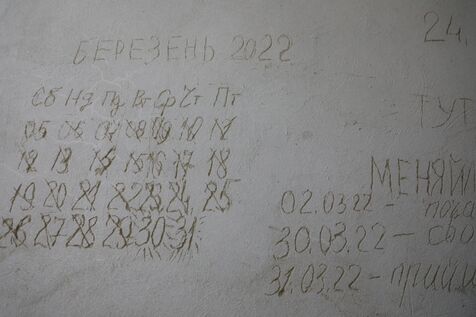 БЕРЕЗЕНЬ 2022
Сб Нд Пн Вт Ср Чт Пт
05 06 07 08 09 10 11
12 13 14 15 16 17 18
19 20 21 22 23 24 25
26 27 28 29 30 31
24.
ТУТ
02.03.22 –
30.03.22 –
31.03.22 –